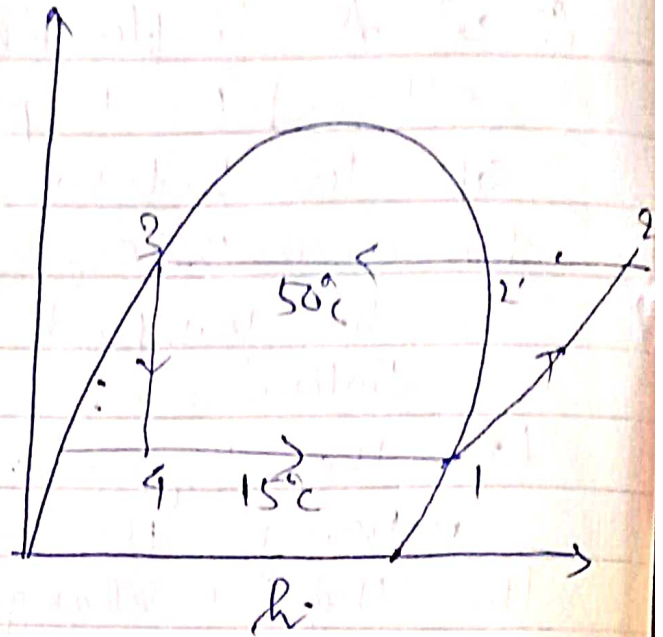 3
2
50°C
2'
4
15°C
1
h